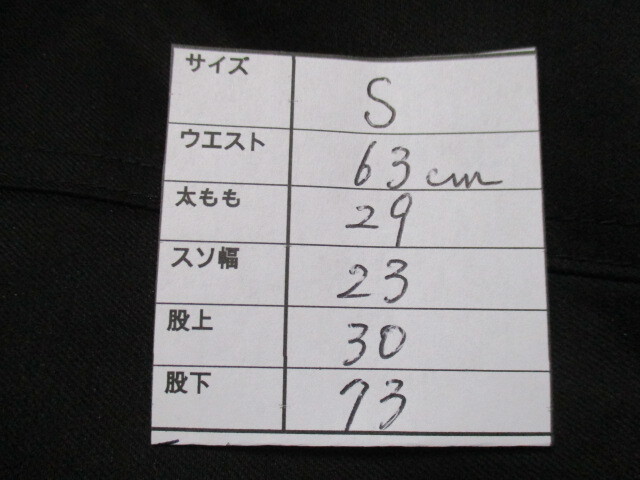 サイズ S
ウエスト 63cm
太もも 29
スソ幅 23
股上 30
股下 73